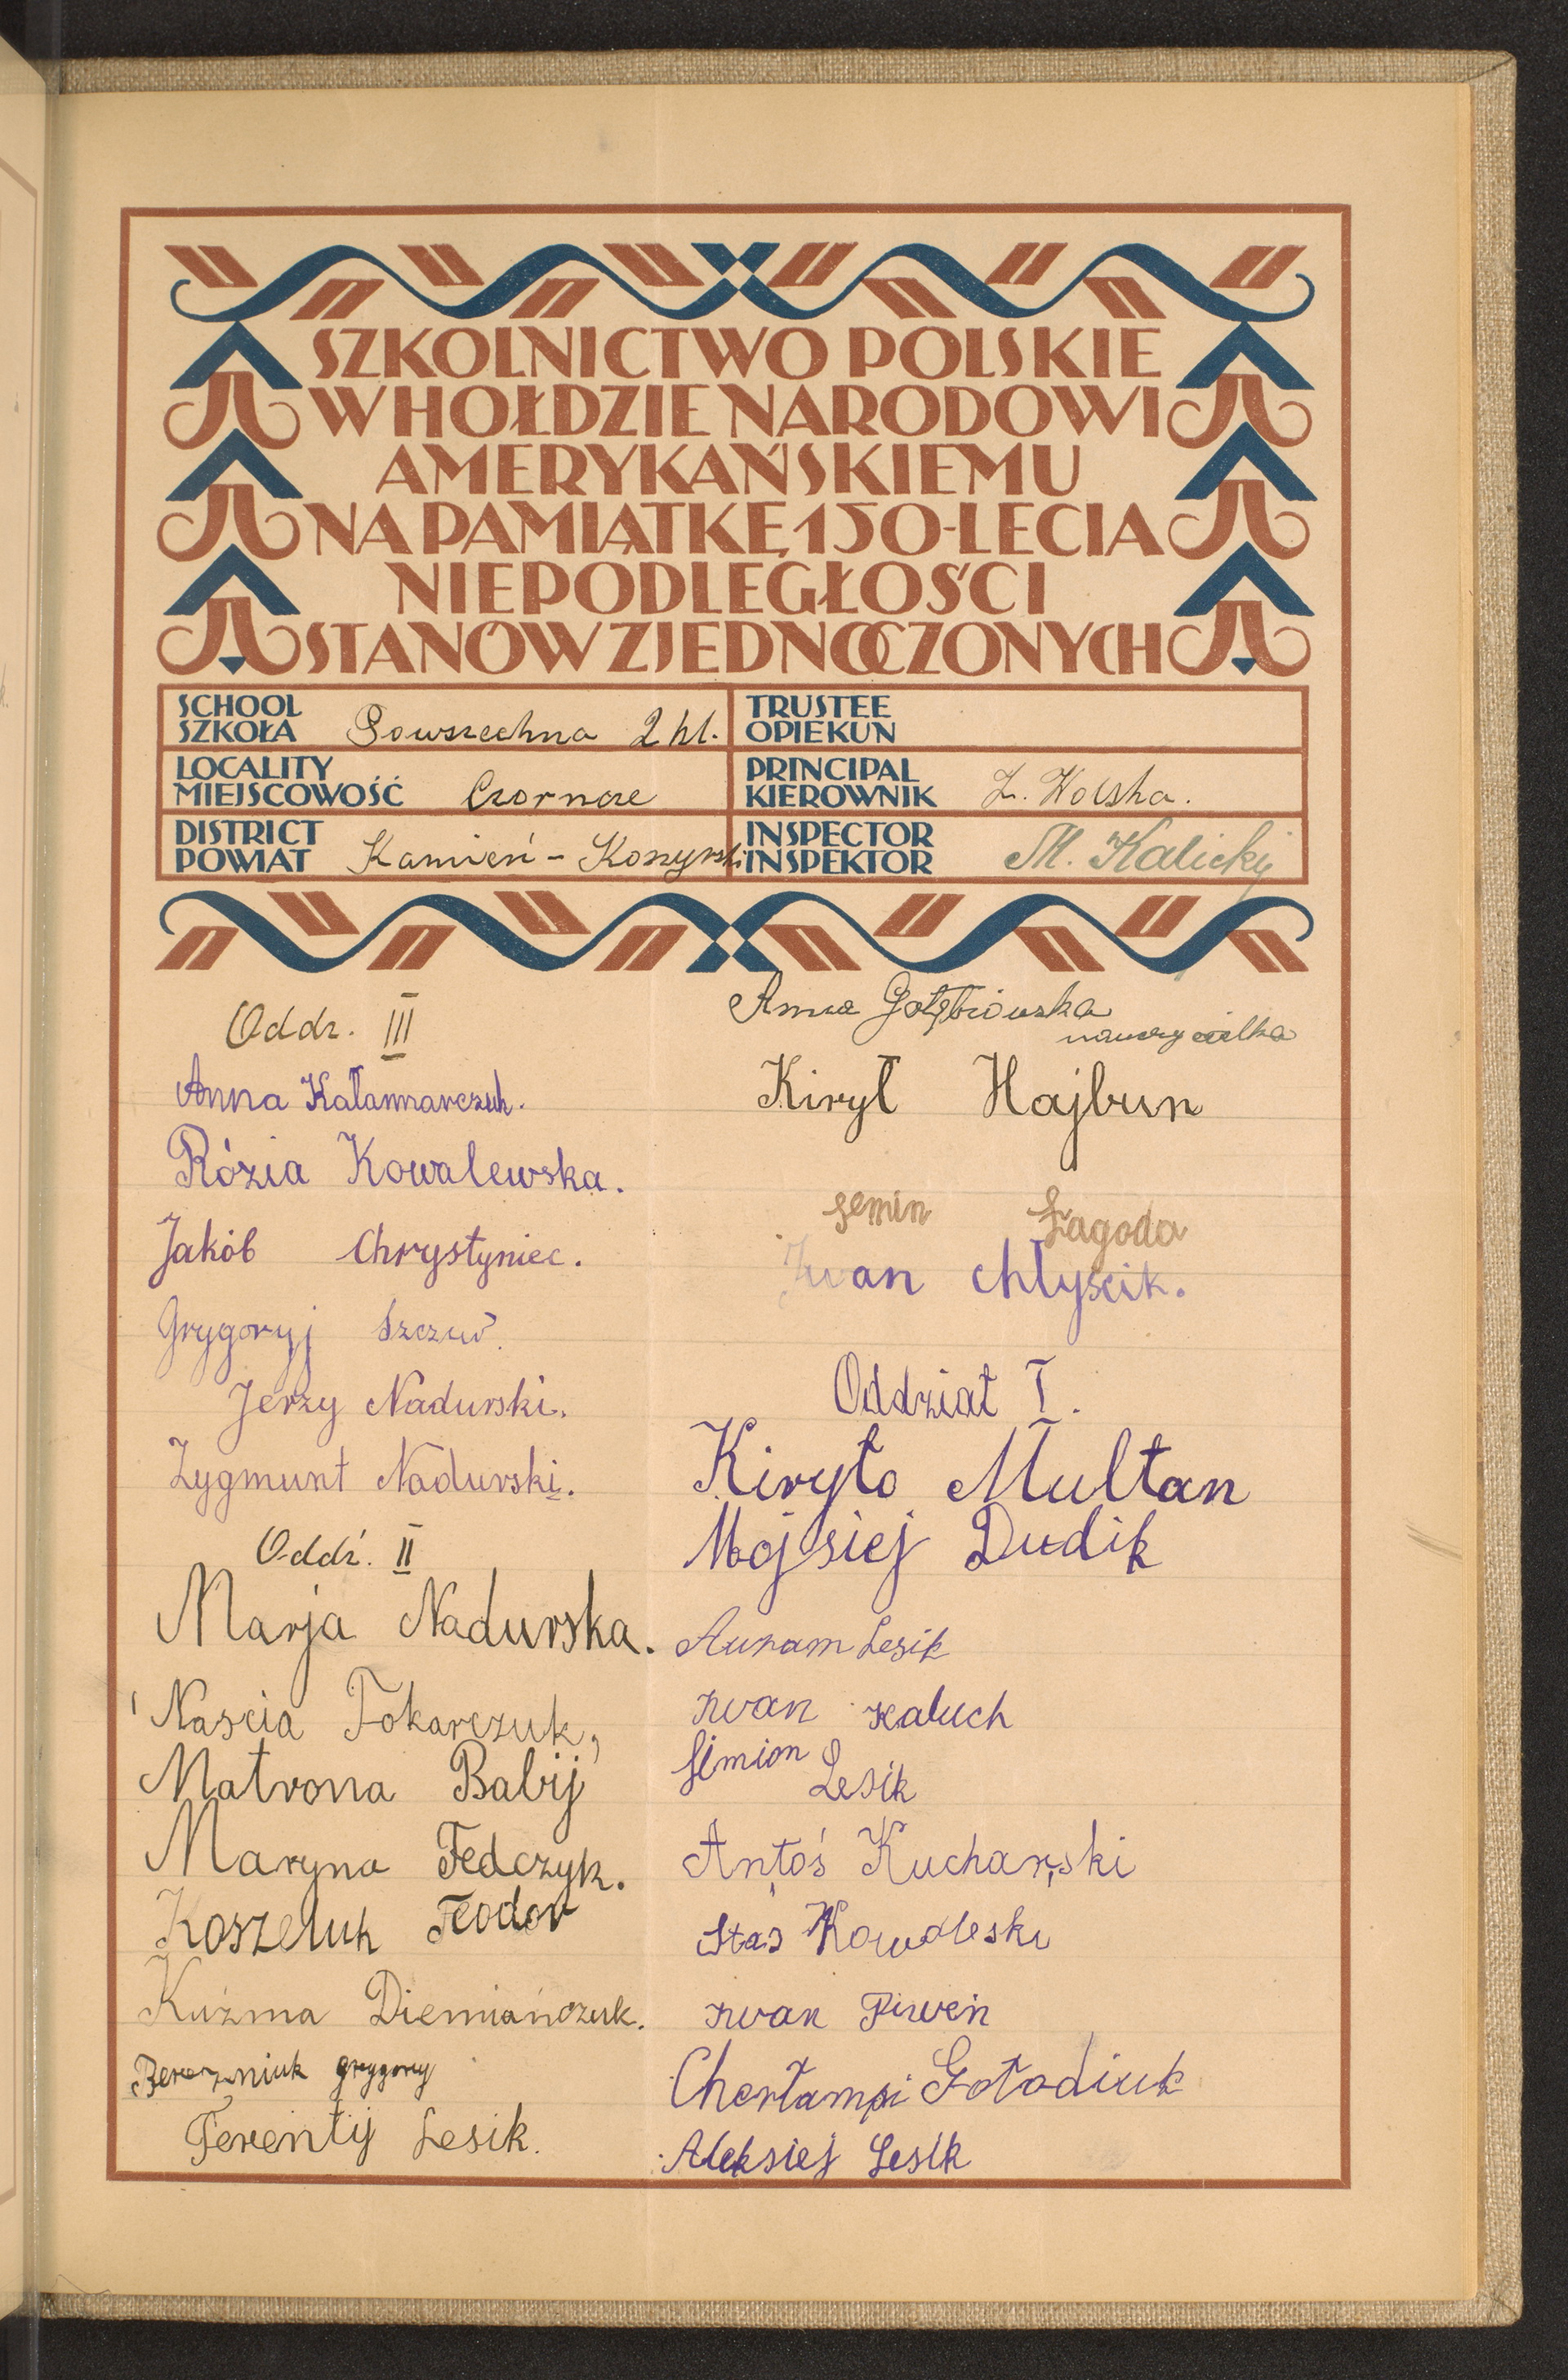 SZKOLNICTWO POLSKIE
W HOŁDZIE NARODOWI
AMERYKAŃSKIEMU
NA PAMIĄTKĘ 150-LECIA
NIEPODLEGŁOŚCI
STANÓW ZJEDNOCZONYCH
SCHOOL
SZKOŁA Powszechna 2 kl.
LOCALITY
MIEJSCOWOŚĆ Czorncze
DISTRICT
POWIAT Kamień-Koszyrski
TRUSTEE
OPIEKUN
PRINCIPAL
KIEROWNIK Z. Wolska.
INSPECTOR
INSPEKTOR M. Kalicki
Oddz. III
Anna Kałamarczuk.
Rózia Kowalewska.
Jakób Chrystyniec.
Grygoryj
Jerzy Nadurski.
Zygmunt Nadurski.
Oddz. II
Marja Nadurska.
Nascia Tokarczuk,
Matrona Babij
Maryna Fedczyk.
Koszeluk Feodor
Kuźma Diemiańczuk.
Berezniuk grygory
Terentij Lesik.
Anna Gołębiowska
nauczycielka
Kirył Hajbun
Semin Łagoda
Iwan Chłyścik.
Oddział I.
Kiryło Multan
Mojsiej Dudik
Auram Lesik
Iwan Kaluch
Simion Lesik
Antoś Kucharski
Staś Kowaleski
Iwan Piweń
Chartampi Gołodiuk
Aleksiej Lesik